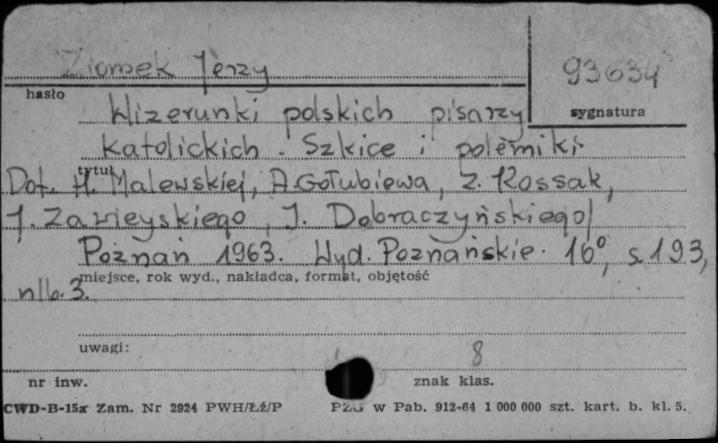 Ziomek Jerzy
93634
hasło
sygnatura
Wizerunki polskich pisarzy
katolickich. Szkice i polemiki.
tytuł
Dot. H. Malewskiej, A. Gołubiewa, Z. Kossak,
J. Zawieyskiego, J. Dobraczyńskiego/
Poznań 1963. Wyd. Poznańskie. 16°, s. 193,
miejsce, rok wyd., nakładca, format, objętość
nlb. 3.
uwagi:
8
nr inw.
znak klas.
CWD-B-15x Zam. Nr 2924 PWH/Łź/P
PZG w Pab. 912-64 1 000 000 szt. kart. b. kl. 5.